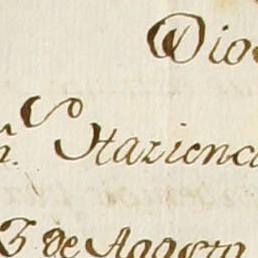 Dio
n. Stazienc
3 de Agosto